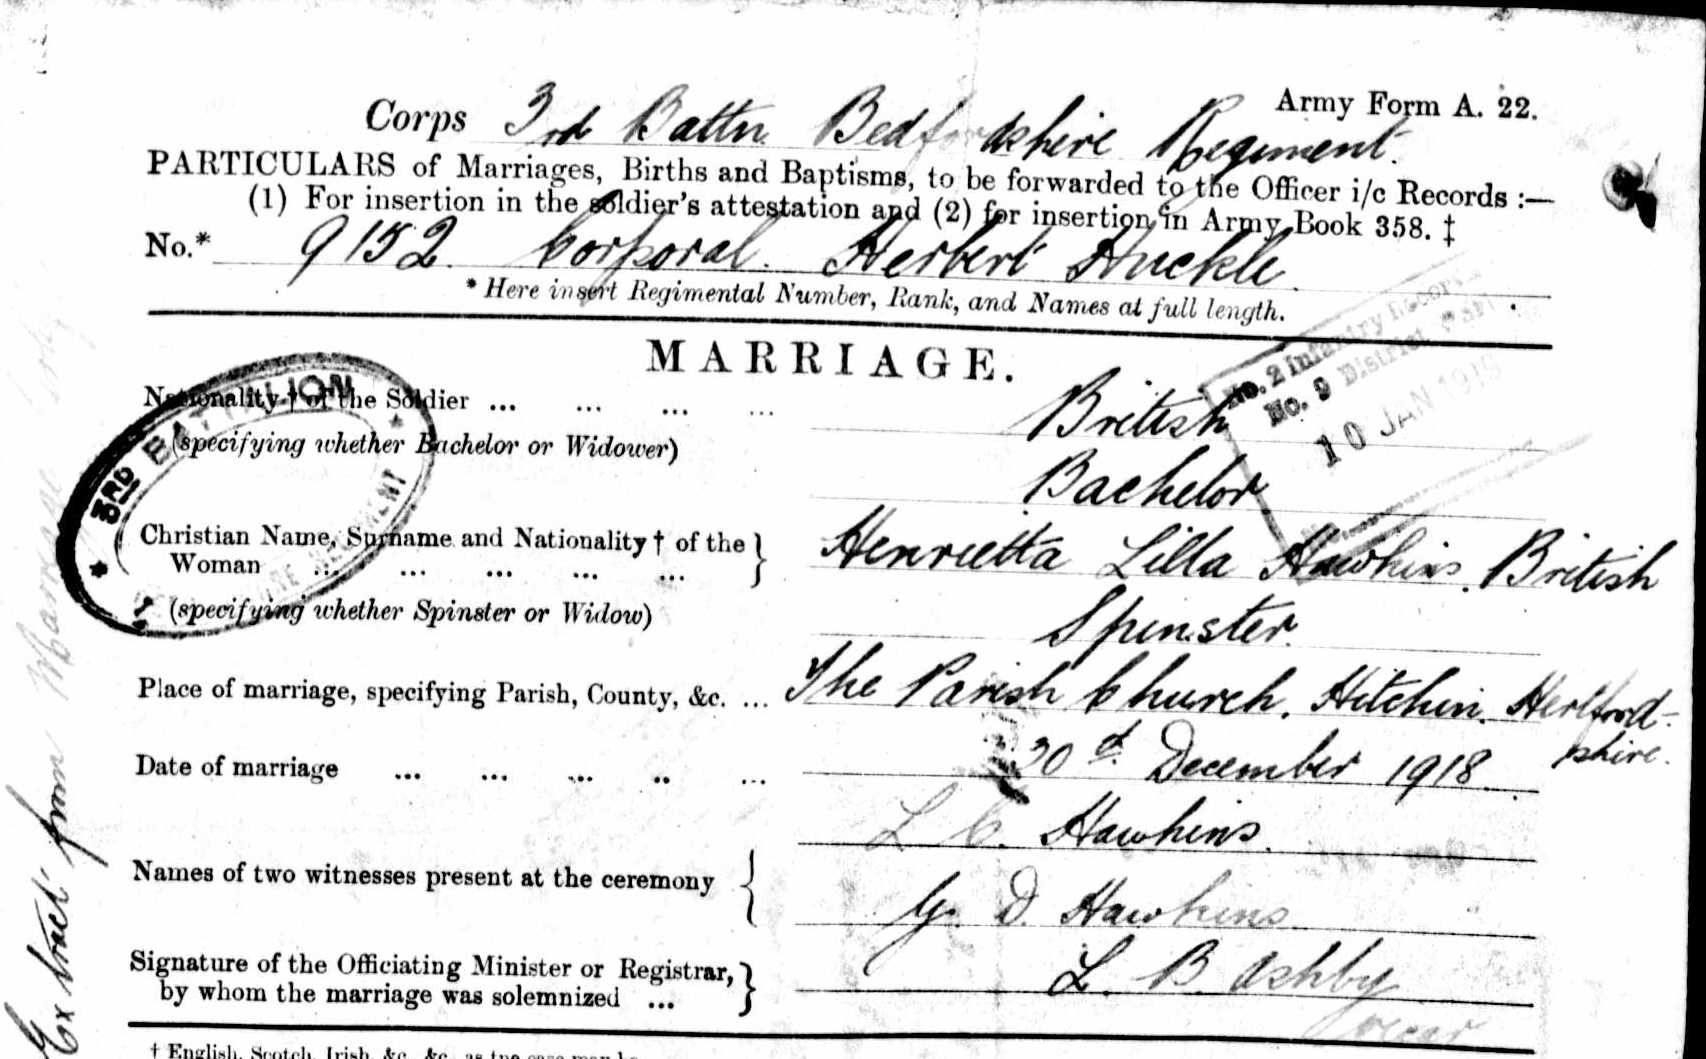 Army Form A. 22.
Corps 3rd Battn. Bedfordshire Regiment.
PARTICULARS of Marriages, Births and Baptisms, to be forwarded to the Officer i/c Records :—
(1) For insertion in the soldier's attestation and (2) for insertion in Army Book 358. ‡
No.* 9152. Corporal. Herbert Huckle.
* Here insert Regimental Number, Rank, and Names at full length.
No. 2 Infantry Record
No. 9 District
10 JAN 1919
MARRIAGE.
3RD BATTALION
REGIMENT
Nationality † of the Soldier ... ... ... ... British
(specifying whether Bachelor or Widower) Bachelor
Christian Name, Surname and Nationality † of the } Henrietta Lilla Hawkins. British
Woman ... ... ... ... ...
(specifying whether Spinster or Widow) Spinster.
Place of marriage, specifying Parish, County, &c. ... The Parish Church. Hitchin. Hertford-
shire.
Date of marriage ... ... ... ... ... 30th December 1918.
L C. Hawkins.
Names of two witnesses present at the ceremony {
G. D. Hawkins
Signature of the Officiating Minister or Registrar, } L. B. Ashby
by whom the marriage was solemnized ...
Vicar
† English, Scotch, Irish, &c., &c., as the case may be
Extract from Marriage